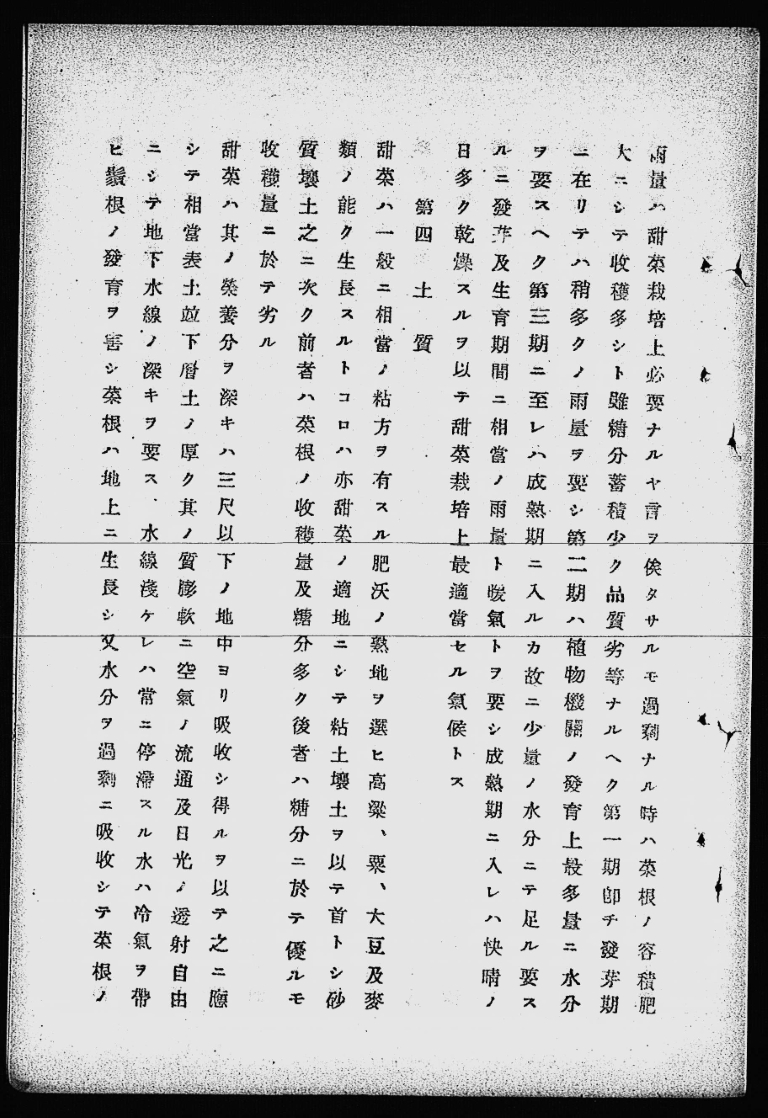 雨量ハ甜菜栽培上必要ナルヤ言ヲ俟タサルモ過剩ナル時ハ菜根ノ容積肥
大ニシテ收穫多シト雖糖分蓄積少ク品質劣等ナルヘク第一期卽チ發芽期
ニ在リテハ稍多クノ雨量ヲ要シ第二期ハ植物機關ノ發育上最多量ニ水分
ヲ要スヘク第三期ニ至レハ成熟期ニ入ルカ故ニ少量ノ水分ニテ足ル要ス
ルニ發芽及生育期間ニ相當ノ雨量ト暖氣トヲ要シ成熟期ニ入レハ快晴ノ
日多ク乾燥スルヲ以テ甜菜栽培上最適當セル氣候トス
第四 土質
甜菜ハ一般ニ相當ノ粘方ヲ有スル肥沃ノ熟地ヲ選ヒ高粱、粟、大豆及麥
類ノ能ク生長スルトコロハ亦甜菜ノ適地ニシテ粘土壤土ヲ以テ首トシ砂
質壤土之ニ次ク前者ハ菜根ノ收穫量及糖分多ク後者ハ糖分ニ於テ優ルモ
收穫量ニ於テ劣ル
甜菜ハ其ノ榮養分ヲ深キハ三尺以下ノ地中ヨリ吸收シ得ルヲ以テ之ニ應
シテ相當表土竝下層土ノ厚ク其ノ質膨軟ニ空氣ノ流通及日光ノ透射自由
ニシテ地下水線ノ深キヲ要ス、水線淺ケレハ常ニ停滯スル水ハ冷氣ヲ帶
ヒ鬚根ノ發育ヲ害シ菜根ハ地上ニ生長シ又水分ヲ過剩ニ吸收シテ菜根ノ